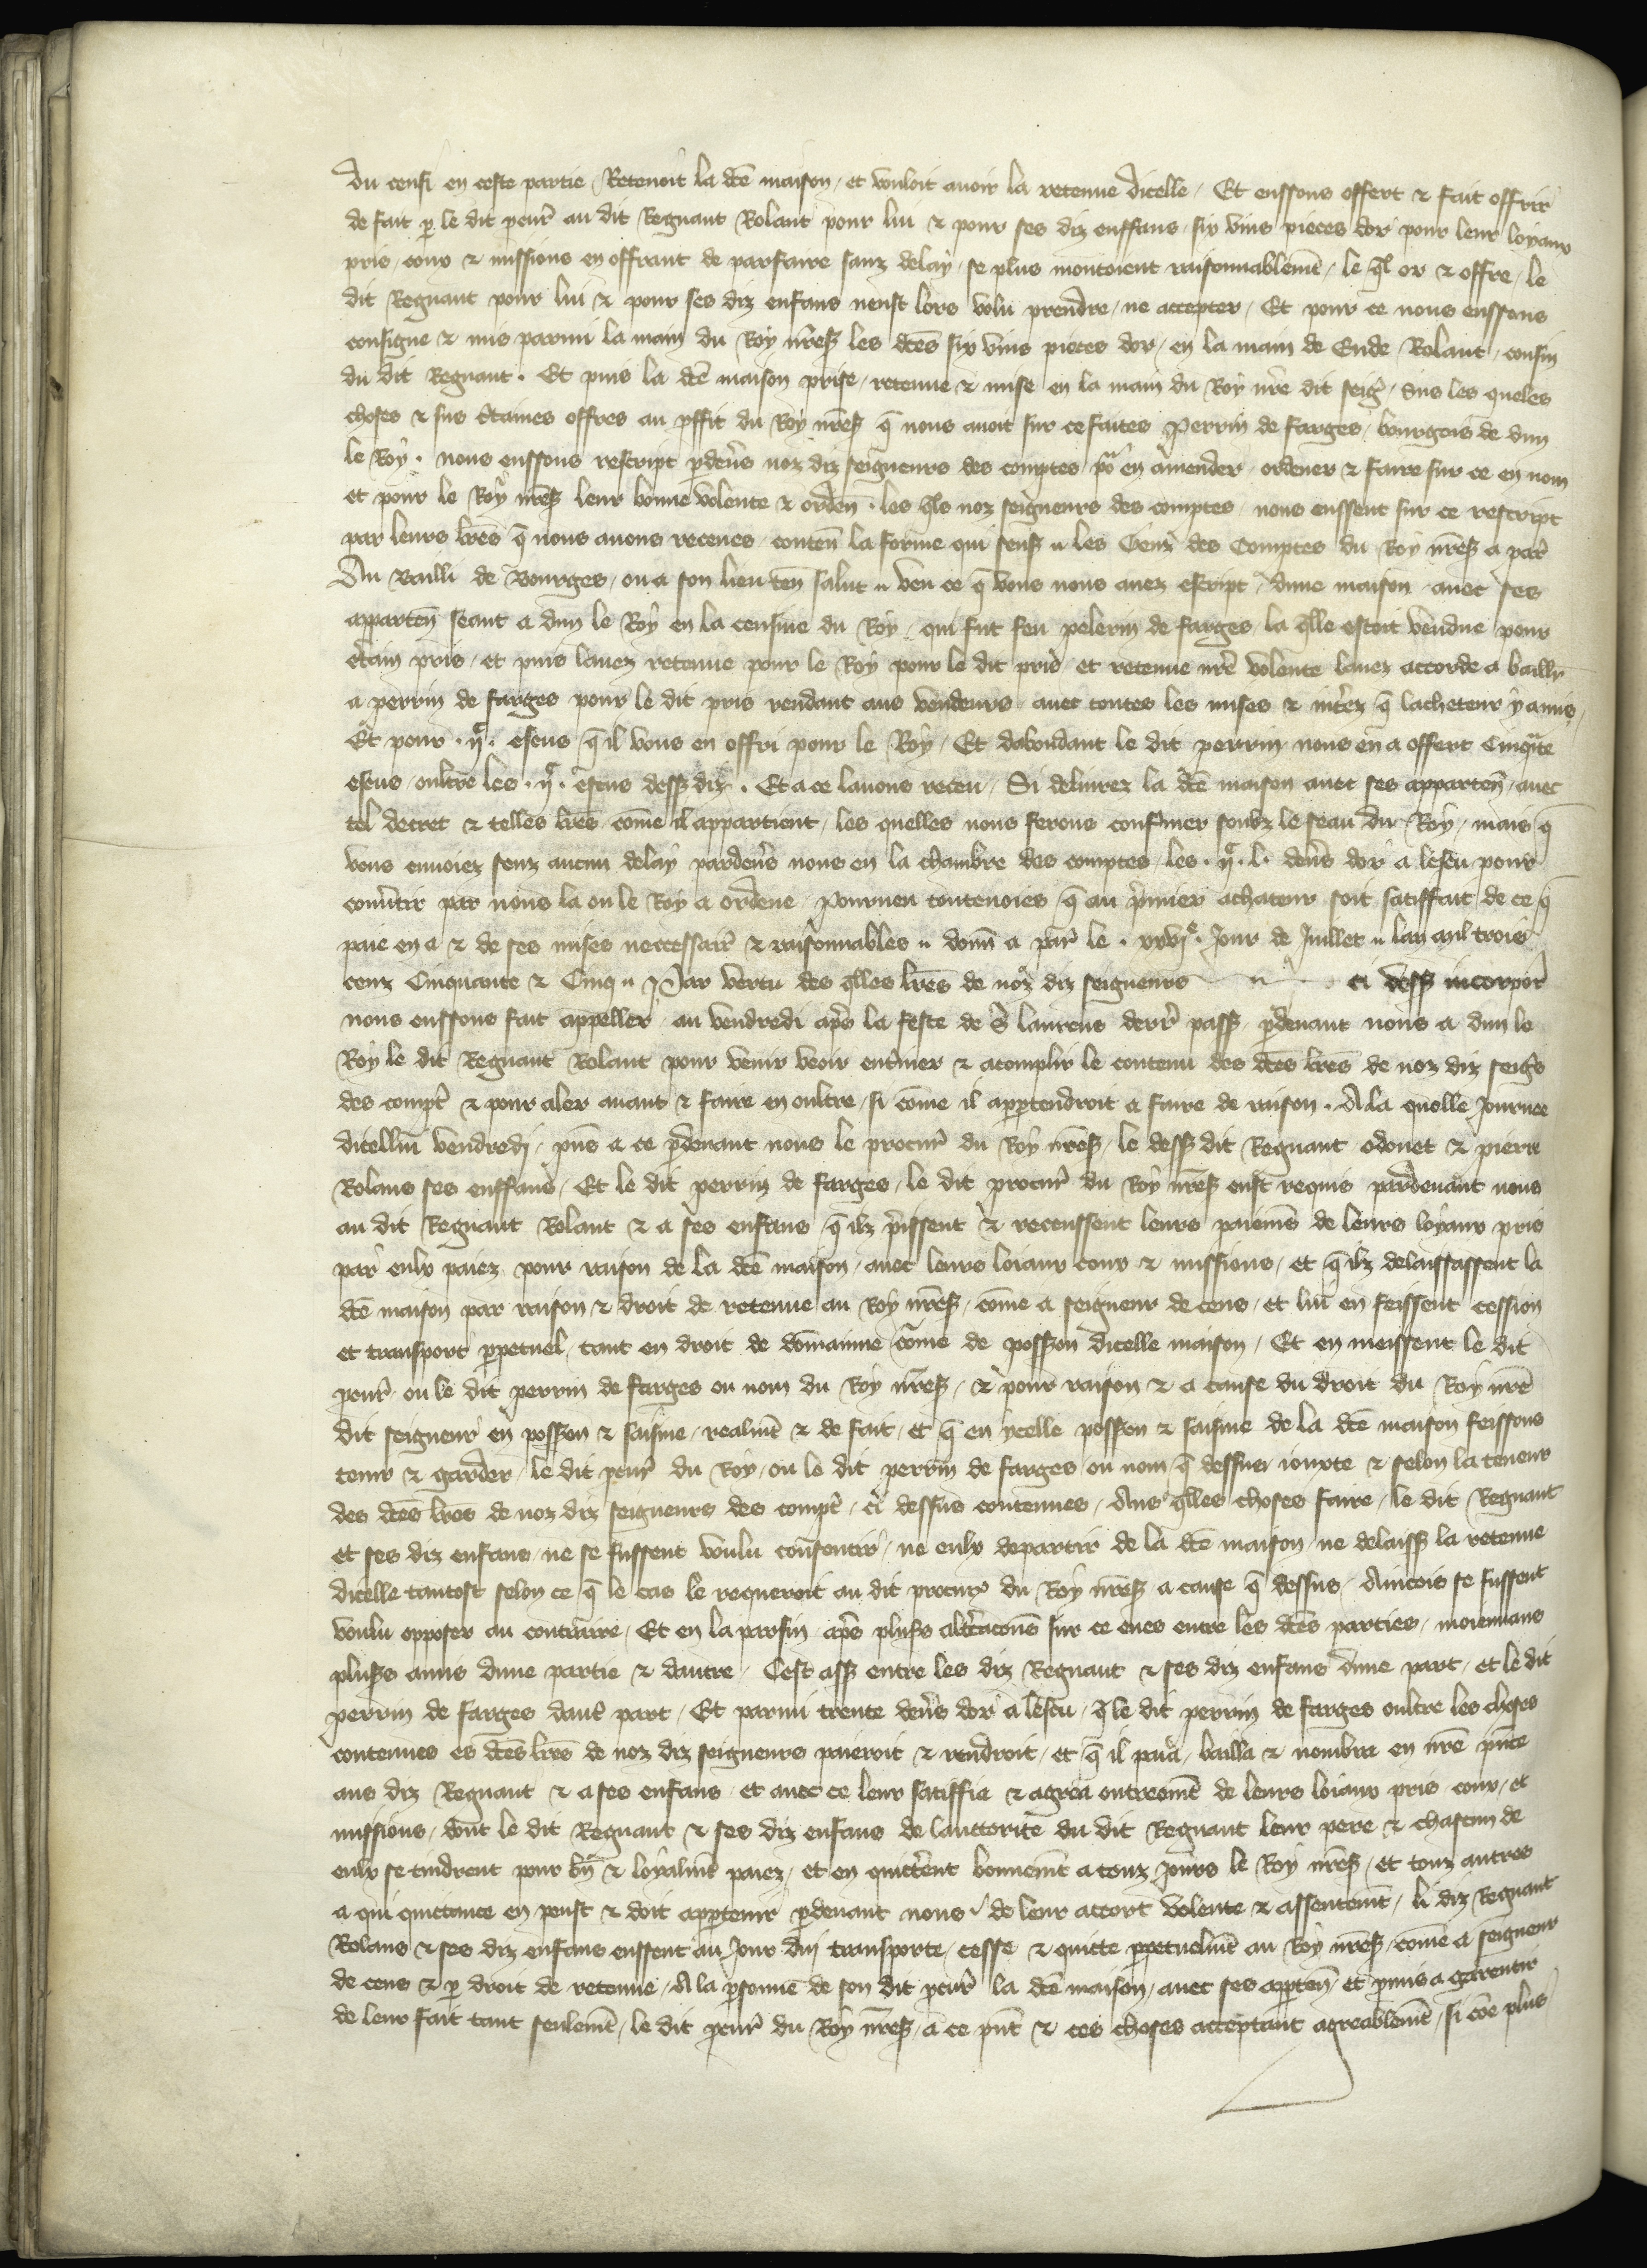 du censi en ceste partie / Retenoit la dcē maison / et vouloit auoir la retenue dicelle / Et enssons offert & fait offrir
de fait p le dit pcur̄ au dit Regnaut Rolant pour lui & pour ses diz enffans / six vins pieces dor pour leur loyaux
pris / couz & missions en offrant de parfaire sanz delay / se plus montoient raisonnablemēt / le ql or & offre / le
dit Regnaut pour lui & pour ses diz enfans neust lors volu prendre / ne accepter / Et pour ce nous enssons
consigne & mis parmi la main du Roy nr̄eß les dcēs six vins pieces dor / en la main de Eude Rolant / cousin
du dit Regnaut . Et puis la dcē maison prise / retenue & mise en la main du Roy nrē dit seigr̄ / Sus les queles
choses & sus c̄taines offres au pffit du Roy nr̄eß q̄ nous auoit sur ce faites Perrin de farges / bourgois de dun
le Roy . nous enssons rescript pdeu̅s noz diz seigneurs des comptes / po᷑ en amender ordener & faire sur ce en nom
et pour le Roy nr̄eß leur bonne volente & orden̄ . les qls noz seigneurs des comptes / nous enssent sur ce rescript
par leurs lrēs q̄ nous auons receues / conten̄ la forme qui senß " les Genz des Comptes du Roy nr̄eß a par̄
Au Bailli de Bourges / ou a son lieu ten̄ salut " veu ce q̄ vous nous auez escript / dune maison auec ses
apparten̄ seant a dun le Roy en la censiue du Roy / qui fut feu pelerin de farges / la qlle estoit vendue pour
c̄tain pris / et puis lauez retenue pour le Roy pour le dit pris / et retenue nrē volente lauez accorde a baillr̄
a perrin de farges pour le dit pris rendant aus vendeurs auec toutes les mises & int̄ez q̄ lacheteur y a mis /
Et pour . ijᶜ . escus q̄ il vous en offri pour le Roy / Et dabondant le dit perrin nous en a offert Cinqᵃte
escus / oultre les . ijᶜ . escus deſſß diz . Et a ce lauons receu / Si deliurez la dcē maison auec ses apparten̄ / auec
tel decret & telles lrēs cōme il appartient / les quelles nous ferons conf̄mer soubz le seau du Roy / mais q̄
vous enuoiez senz aucun delay pardeu̅s nous en la chambre des comptes / les . ijᶜ . l . den̄s dor a lescu pour
conu̅tir par nous la ou le Roy a ordene / Pourueu toutenoies q̄ au p̄mier achateur soit satiffait de ce q̄
paie en a & de ses mises neccessair̄ & raisonnables " donn̄ a par̄ le . xxvjᵉ . Jour de Juillet " lan mil trois
cenz Cinquante & Cinq " Par vertu des qlles lrēs de noz diz seigneurs " ci deſſß incorpor̄
nous enssons fait appeller / au vendredi ap̄s la feste de S̄ laurens derr̄ passß / pdeuant nous a dun le
Roy le dit Regnaut Rolant pour venir veoir ent̄iner & acomplir le contenu des dcēs lrēs de noz diz seigr̄s
des compt̄ & pour aler auant & faire en oultre / si cōme il apptendroit a faire de raison . A la quelle Journee
dicellui vendredj / pn̄s a ce pdeuant nous le procur̄ du Roy nr̄eß / le deſſß dit Regnaut odonet & pierre
Rolans ses enffans / Et le dit perrin de farges / le dit procur̄ du Roy nr̄eß eust requis pardeuant nous
au dit Regnaut Rolant & a ses enfans / q̄ ilz p̄issent & receussent leurs paiemēs de leurs loyaux pris
par eulx paiez pour raison de la dcē maison / auec leurs loiaux couz & missions / et q̄ ilz delaissassent la
dcē maison par raison & droit de retenue au Roy nr̄eß / cōme a seigneur de cens / et lui en feissent cession
et transport ppetuel / tant en droit de domainne cōme de posßon dicelle maison / Et en meissent le dit
pcur̄ / ou le dit perrin de farges ou nom du Roy nr̄eß / & pour raison & a cause du droit du Roy nrē
dit seigneur en posßon & saisine / realmēt & de fait / et q̄ en ycelle posßon & saisine de la dcē maison feissons
tenir & garder / le dit pcur̄ du Roy / ou le dit perrin de farges ou nom q̄ dessus iouxte & selon la teneur
des dcēs lrēs de noz diz seigneurs des compt̄ / ci dessus contenues / Aus qlles choses faire / le dit Regnaut
et ses diz enfans / ne se fussent voulu consentir / ne eulx departir de la dcē maison / ne delaissß la retenue
dicelle tantost selon ce q̄ le cas le requeroit au dit procur̄ du Roy nr̄eß a cause q̄ dessus / Aincois se fussent
voulu opposer au contraire / Et en la parfin ap̄s plusß alt̄cacōns sur ce eues entre les dcēs parties / moiennans
plusßs amis dune partie & dautre / Cest assß entre les diz Regnaut & ses diz enfans dune part / et le dit
perrin de farges daut̄ part / Et parmi trente den̄s dor a lescu / q̄ le dit perrin de farges oultre les choses
contenues es dcēs lrēs de noz diz seigneurs paieroit & rendroit / et q̄ il paia / bailla & nombra en nrē pn̄ce
aus diz Regnaut & a ses enfans / et auec ce leur satiffia & agrea entieremēt de leurs loiaux pris / couz / et
missions / dont le dit Regnaut & ses diz enfans de lauctorite du dit Regnaut leur pere & chascun de
eulx se tindrent pour bn̄ & loyalmēt paiez / et en quict̄ent bonnemēt a touz Jours le Roy nr̄eß / et touz autres
a qui quictance en peust & doit apptenir pdeuant nous / de leur accort volente & assentemēt / li diz Regnaut
Rolans & ses diz enfans enssent au Jour duj transporte / cesse & quicte ppetuelmēt au Roy nr̄eß / cōme a seigneur
de cens & p droit de retenue / A la psonne de son dit pcur̄ la dcē maison / auec ses appten̄ / et pmis a garentir
de leur fait tant seulemēt / le dit pcur̄ du Roy nr̄eß / a ce pn̄t & ces choses acceptant agreablemēt / si cōe plus